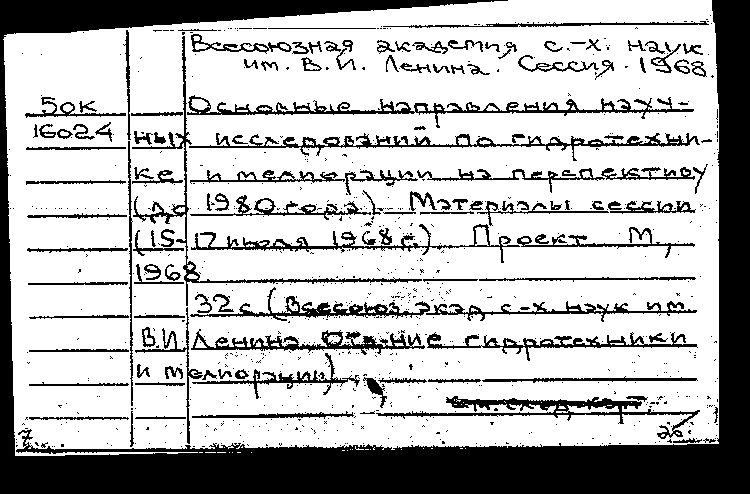 Всесоюзная академия с.-х. наук
им. В.И. Ленина. Сессия. 1968.
50к Основные направления науч-
16024 ных исследований по гидротехни-
ке и мелиорации на перспективу
(до 1980 года). Материалы сессии
(15-17 июля 1968 г.) Проект М.,
1968
32 с. (Всесоюз. акад с-х. наук им.
В.И Ленина. Отд-ние гидротехники
и мелиорации)
См. след. карт.
7. 26.